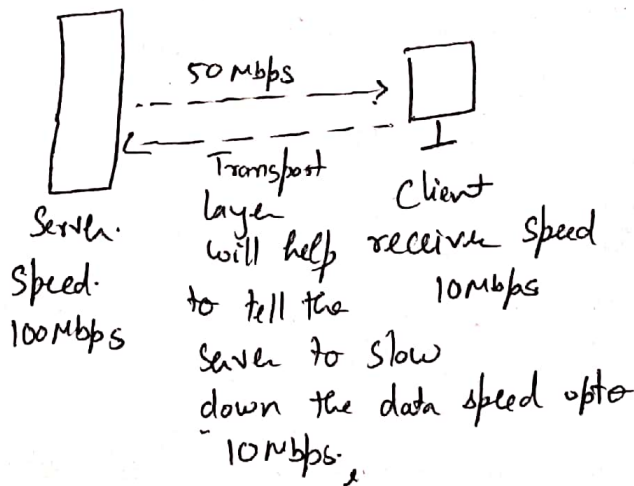 50 Mbps
Server.
Speed.
100 Mbps
Transport
layer
will help
to tell the
server to slow
down the data speed upto
10 Mbps.
Client
receiver speed
10 Mbps